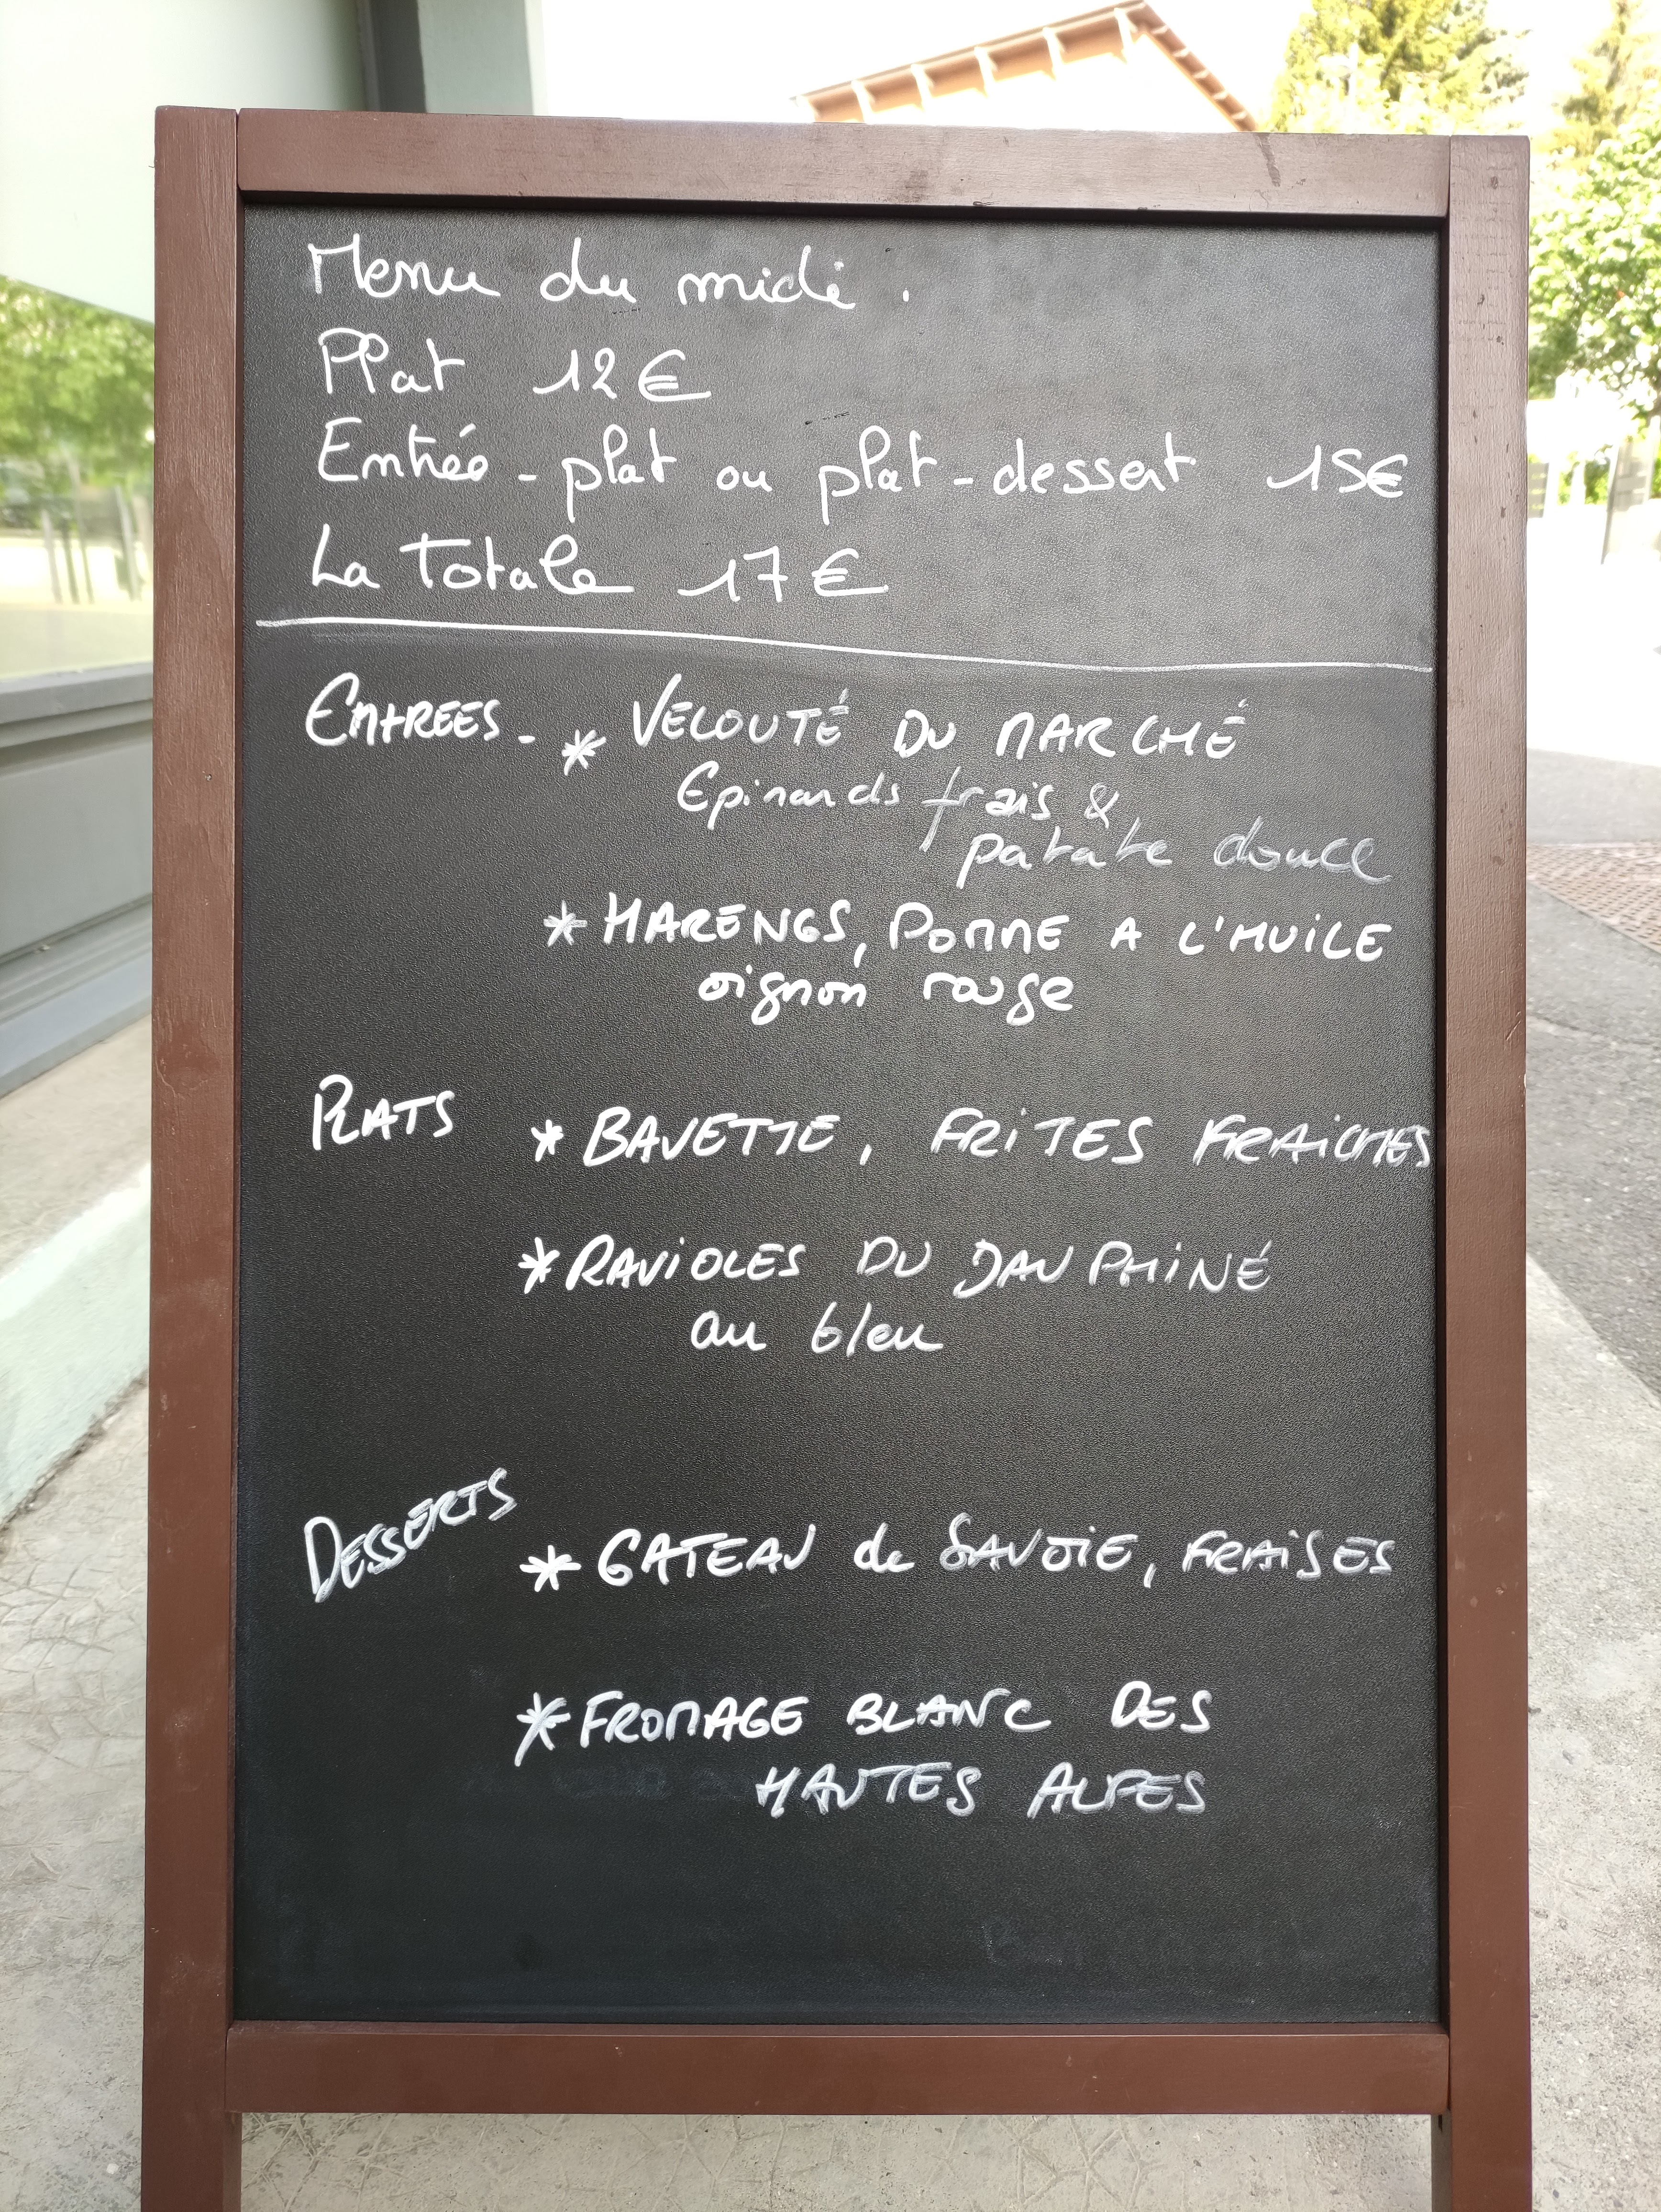 Menu du midi.
Plat 12€
Entrée - plat ou plat - dessert 15€
La Totale 17€
ENTREES - * VELOUTÉ DU MARCHÉ
Epinards frais &
patate douce
* HARENGS, POMME A L'HUILE
oignon rouge
PLATS * BAVETTE, FRITES FRAICHES
* RAVIOLES DU DAUPHINÉ
au bleu
DESSERTS * GATEAU de SAVOIE, FRAISES
* FROMAGE BLANC DES
HAUTES ALPES